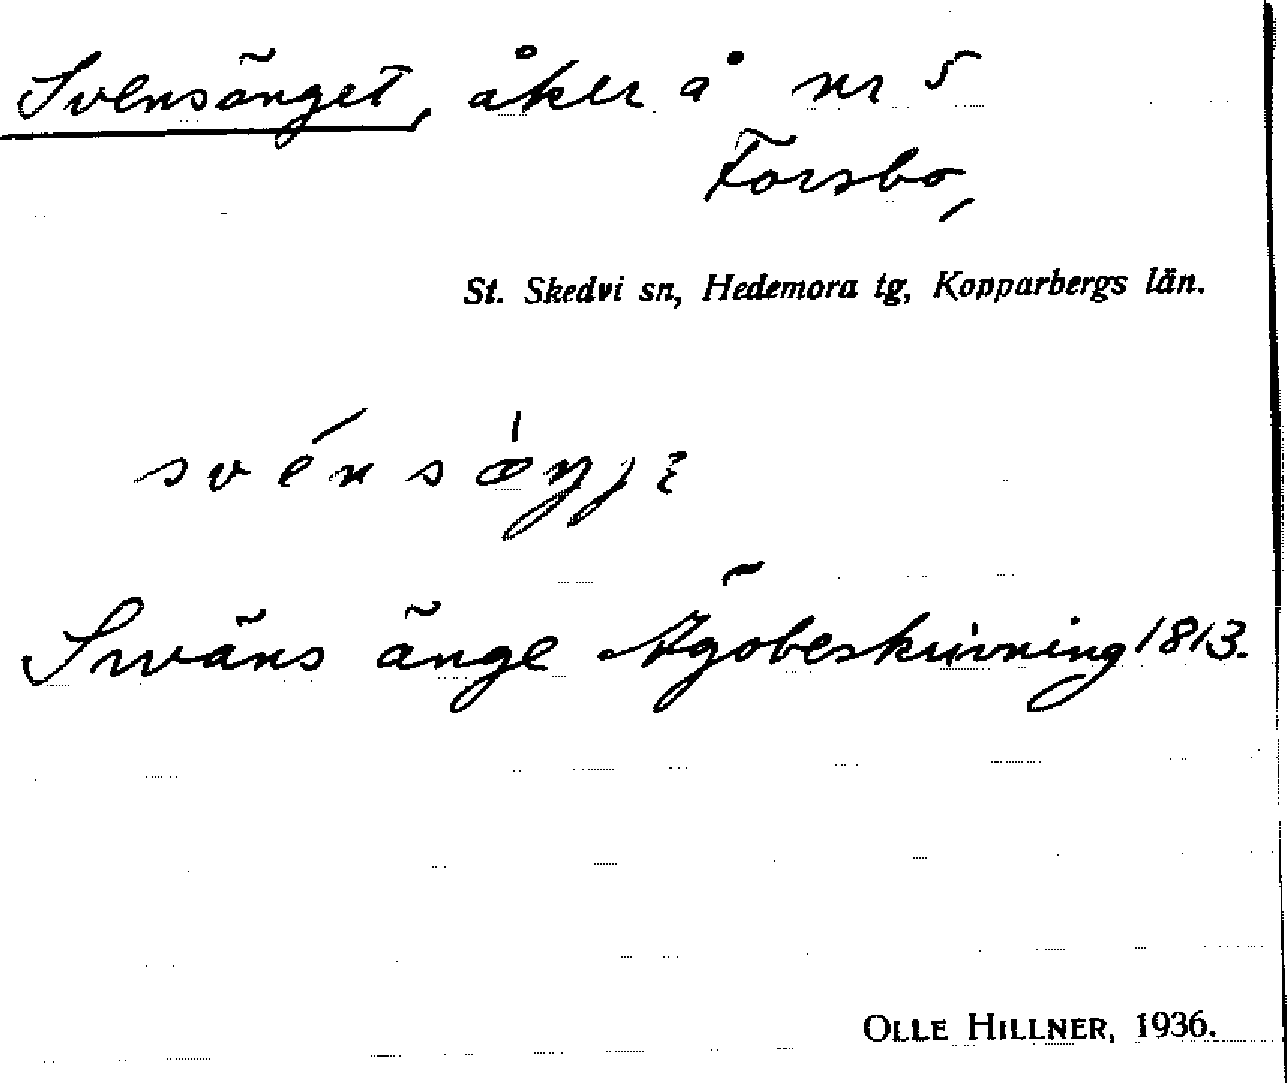 Svensänget, åker å nr 5
Forsbo,
St. Skedvi sn, Hedemora tg, Kopparbergs län.
Swäns änge Ägobeskrivning 1813.
OLLE HILLNER, 1936.